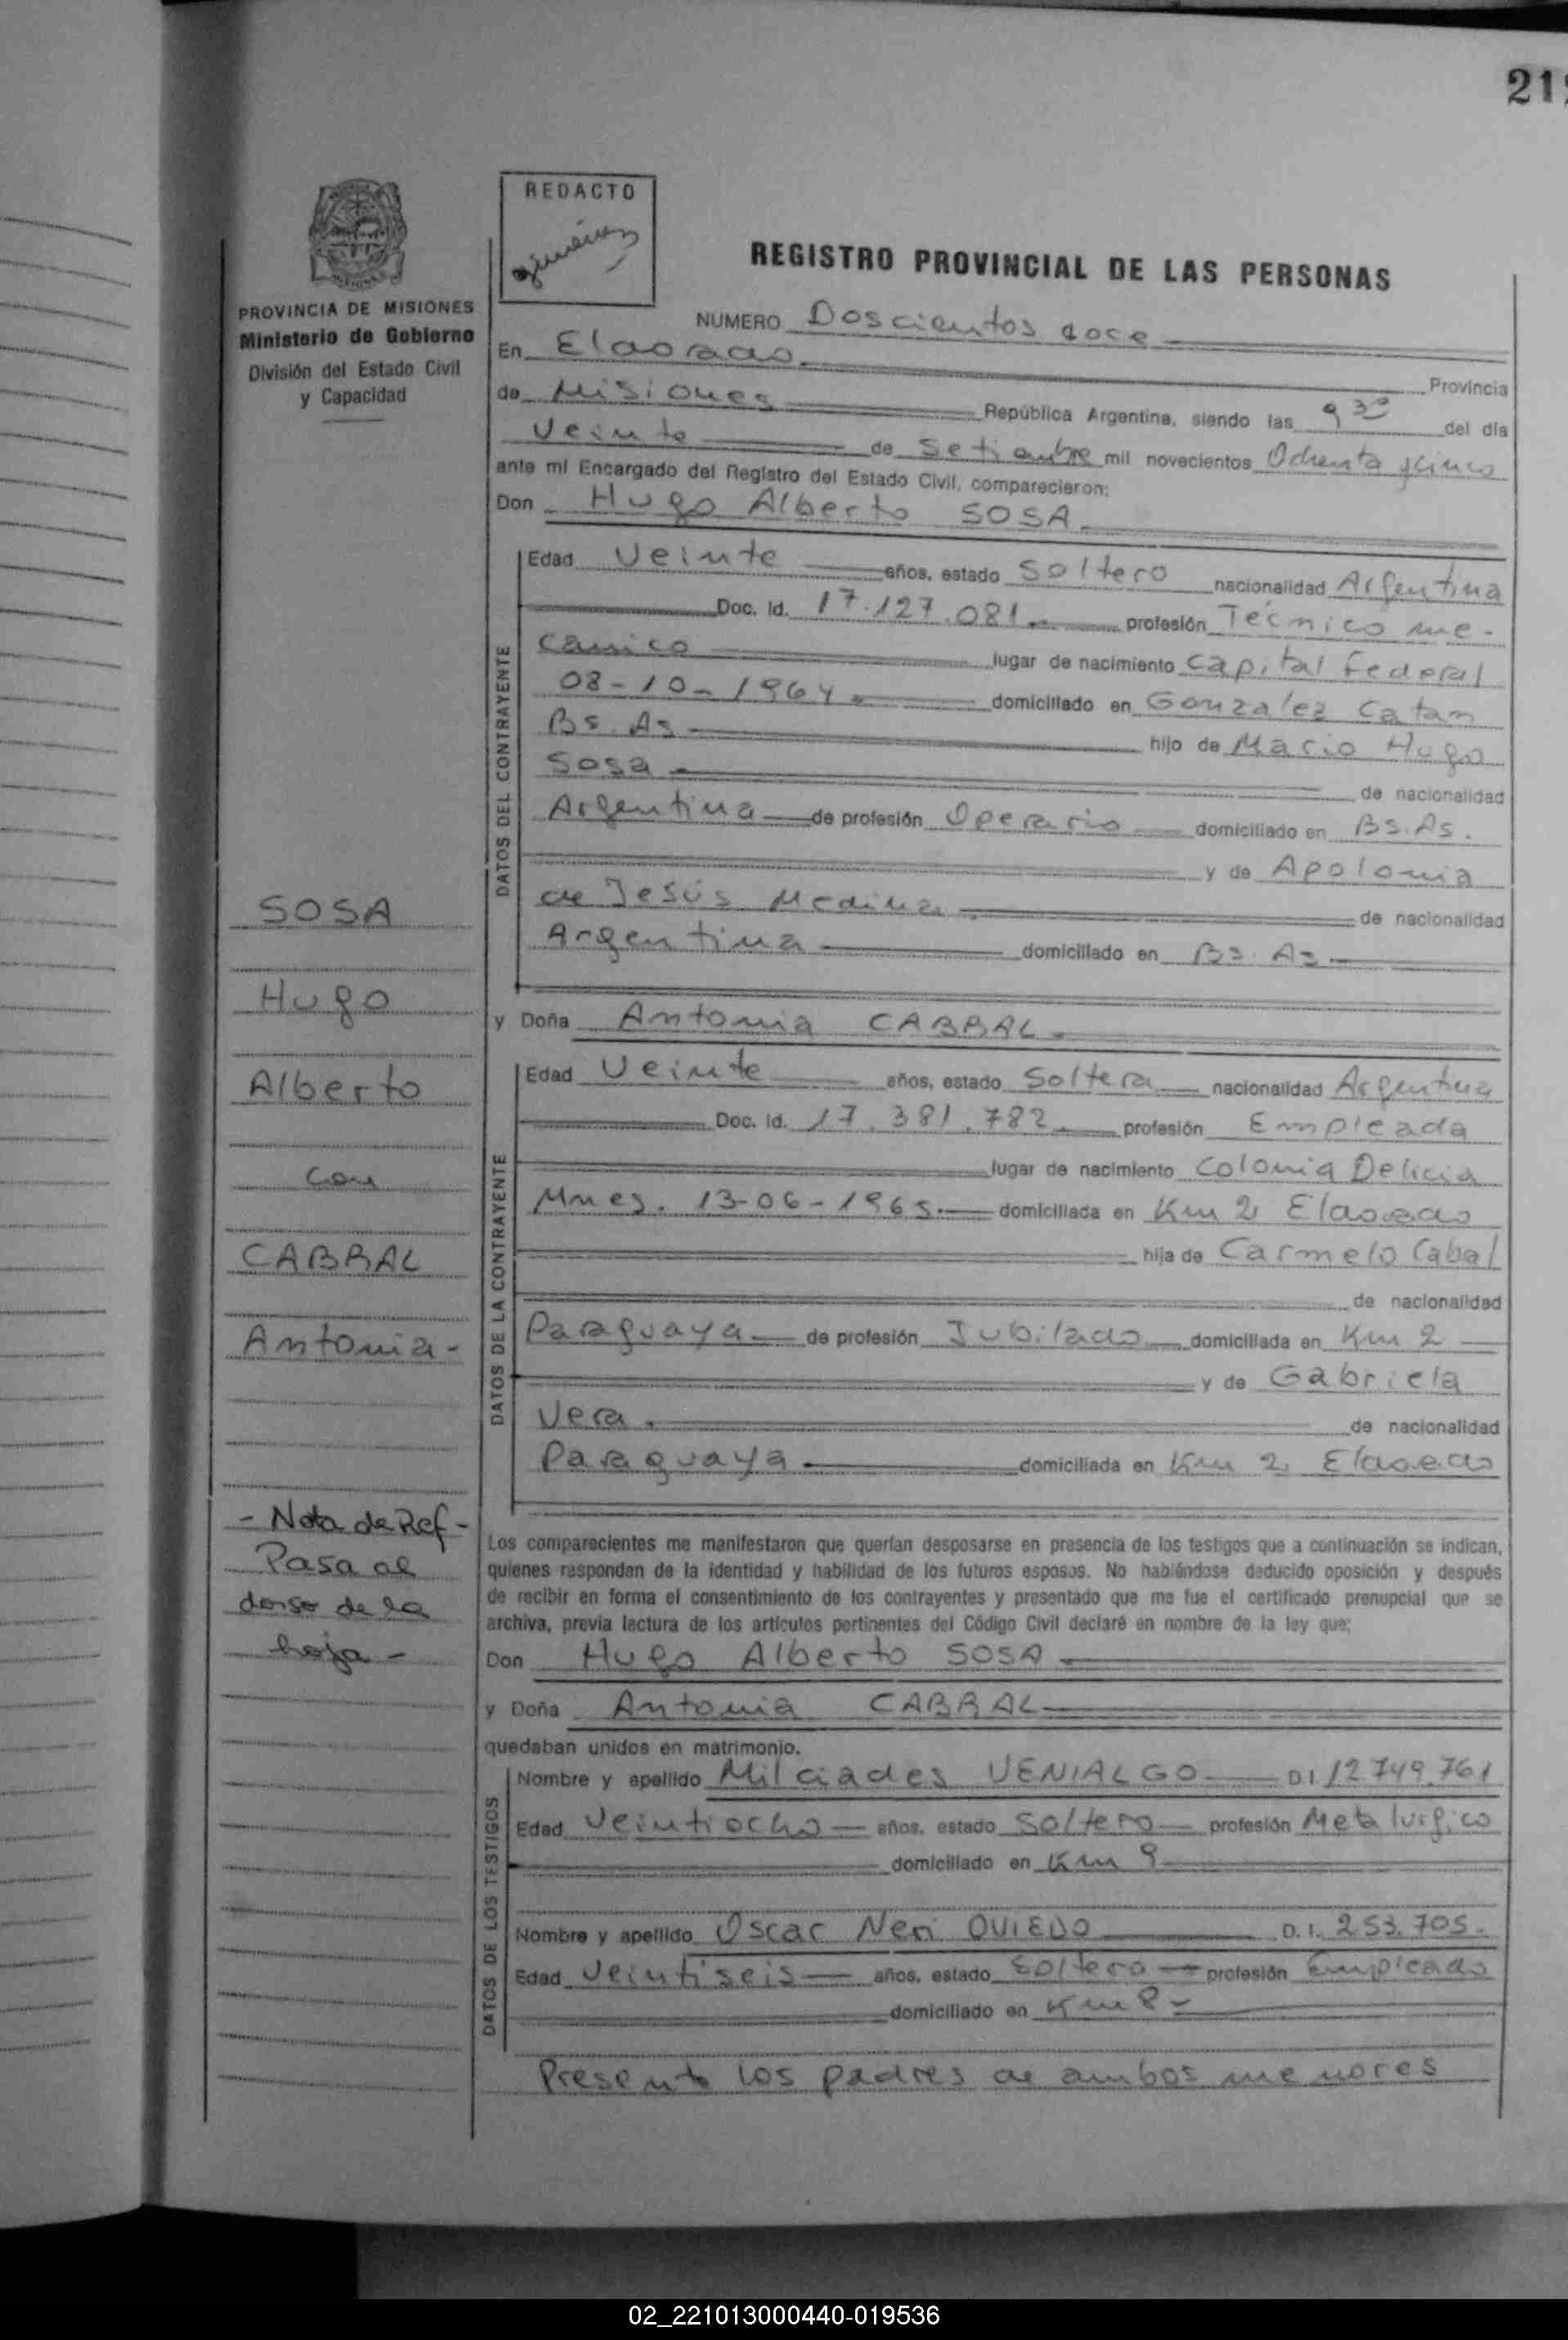 21
REDACTO
PROVINCIA DE MISIONES
Ministerio de Gobierno
División del Estado Civil
y Capacidad
SOSA
Hugo
Alberto
con
CABRAL
Antonia-
- Nota de Ref -
Pasa al
dorso de la
hoja -
REGISTRO PROVINCIAL DE LAS PERSONAS
NUMERO Doscientos doce
En Eldorado Provincia
de Misiones República Argentina, siendo las 9 30 del día
Veinte de Setiembre mil novecientos Ochenta y cinco
ante mí Encargado del Registro del Estado Civil, comparecieron:
Don Hugo Alberto SOSA
DATOS DEL CONTRAYENTE
Edad Veinte años, estado Soltero nacionalidad Argentina
Doc. Id. 17.127.081 profesión Técnico me-
cánico lugar de nacimiento Capital Federal
08-10-1964 domiciliado en Gonzalez Catan
Bs. As hijo de Mario Hugo
Sosa de nacionalidad
Argentina de profesión Operario domiciliado en Bs. As.
y de Apolonia
de Jesús Medina de nacionalidad
Argentina domiciliado en Bs. As.
y Doña Antonia CABRAL
DATOS DE LA CONTRAYENTE
Edad Veinte años, estado Soltera nacionalidad Argentina
Doc. Id. 17.381.782 profesión Empleada
lugar de nacimiento Colonia Delicia
Mnes. 13-06-1965 domiciliada en Km 2 Eldorado
hija de Carmelo Cabal
de nacionalidad
Paraguaya de profesión Jubilado domiciliada en Km 2
y de Gabriela
Vera. de nacionalidad
Paraguaya domiciliada en Km 2 Eldorado
Los comparecientes me manifestaron que querían desposarse en presencia de los testigos que a continuación se indican,
quienes responden de la identidad y habilidad de los futuros esposos. No habiéndose deducido oposición y después
de recibir en forma el consentimiento de los contrayentes y presentado que me fue el certificado prenupcial que se
archiva, previa lectura de los artículos pertinentes del Código Civil declaré en nombre de la ley que;
Don Hugo Alberto SOSA
y Doña Antonia CABRAL
quedaban unidos en matrimonio.
DATOS DE LOS TESTIGOS
Nombre y apellido Milciades VENIALGO D.I 12.749.761
Edad Veintiocho años, estado Soltero profesión Metalurgico
domiciliado en Km 9
Nombre y apellido Oscar Neri OVIEDO D.I. 253.705.
Edad Veintiseis años, estado Soltero profesión Empleado
domiciliado en Km 8
Presente los padres de ambos menores
02_221013000440-019536